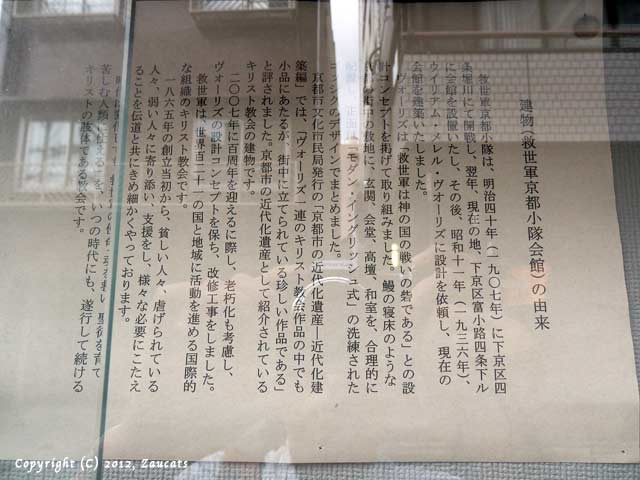 建物(救世軍京都小隊会館)の由来
救世軍京都小隊は、明治四十年(一九〇七年)に下京区四
条堀川にて開戦し、翌年、現在の地、下京区富小路四条下ル
に会館を設置いたし、その後、昭和十一年(一九三六年)、
ウイリアム・メレル・ヴォーリズに設計を依頼し、現在の
会館を建築いたしました。
ヴォーリズは「救世軍は神の国の戦いの砦である」との設
計コンセプトを掲げて取り組みました。鰻の寝床のような
の街中の敷地に、玄関、会堂、高壇、和室を、合理的に
配置し、正面は「モダン・イングリッシュ式」の洗練された
ゴシックのデザインでまとめました。
京都市文化市民局発行の「京都市の近代化遺産―近代化建
築編」では、「ヴォーリズ一連のキリスト教会作品の中でも
小品にあたるが、街中に立てられている珍しい作品である」
と評されました。京都市の近代化遺産として紹介されている
キリスト教会の建物です。
二〇〇七年に百周年を迎えるに際し、老朽化も考慮し、
ヴォーリズの設計コンセプトを保ち、改修工事をしました。
救世軍は、世界百二十一の国と地域に活動を進める国際的
な組織のキリスト教会です。
一八六五年の創立当初から、貧しい人々、虐げられている
人々、弱い人々に寄り添い、支援をし、様々な必要にこたえ
ることを伝道と共にきめ細かくやっております。
時代は変わっても
苦しむ人類に仕える」を、いつの時代にも、遂行して続ける
キリストの肢体である教会です。
Copyright (C) 2012, Zaucats